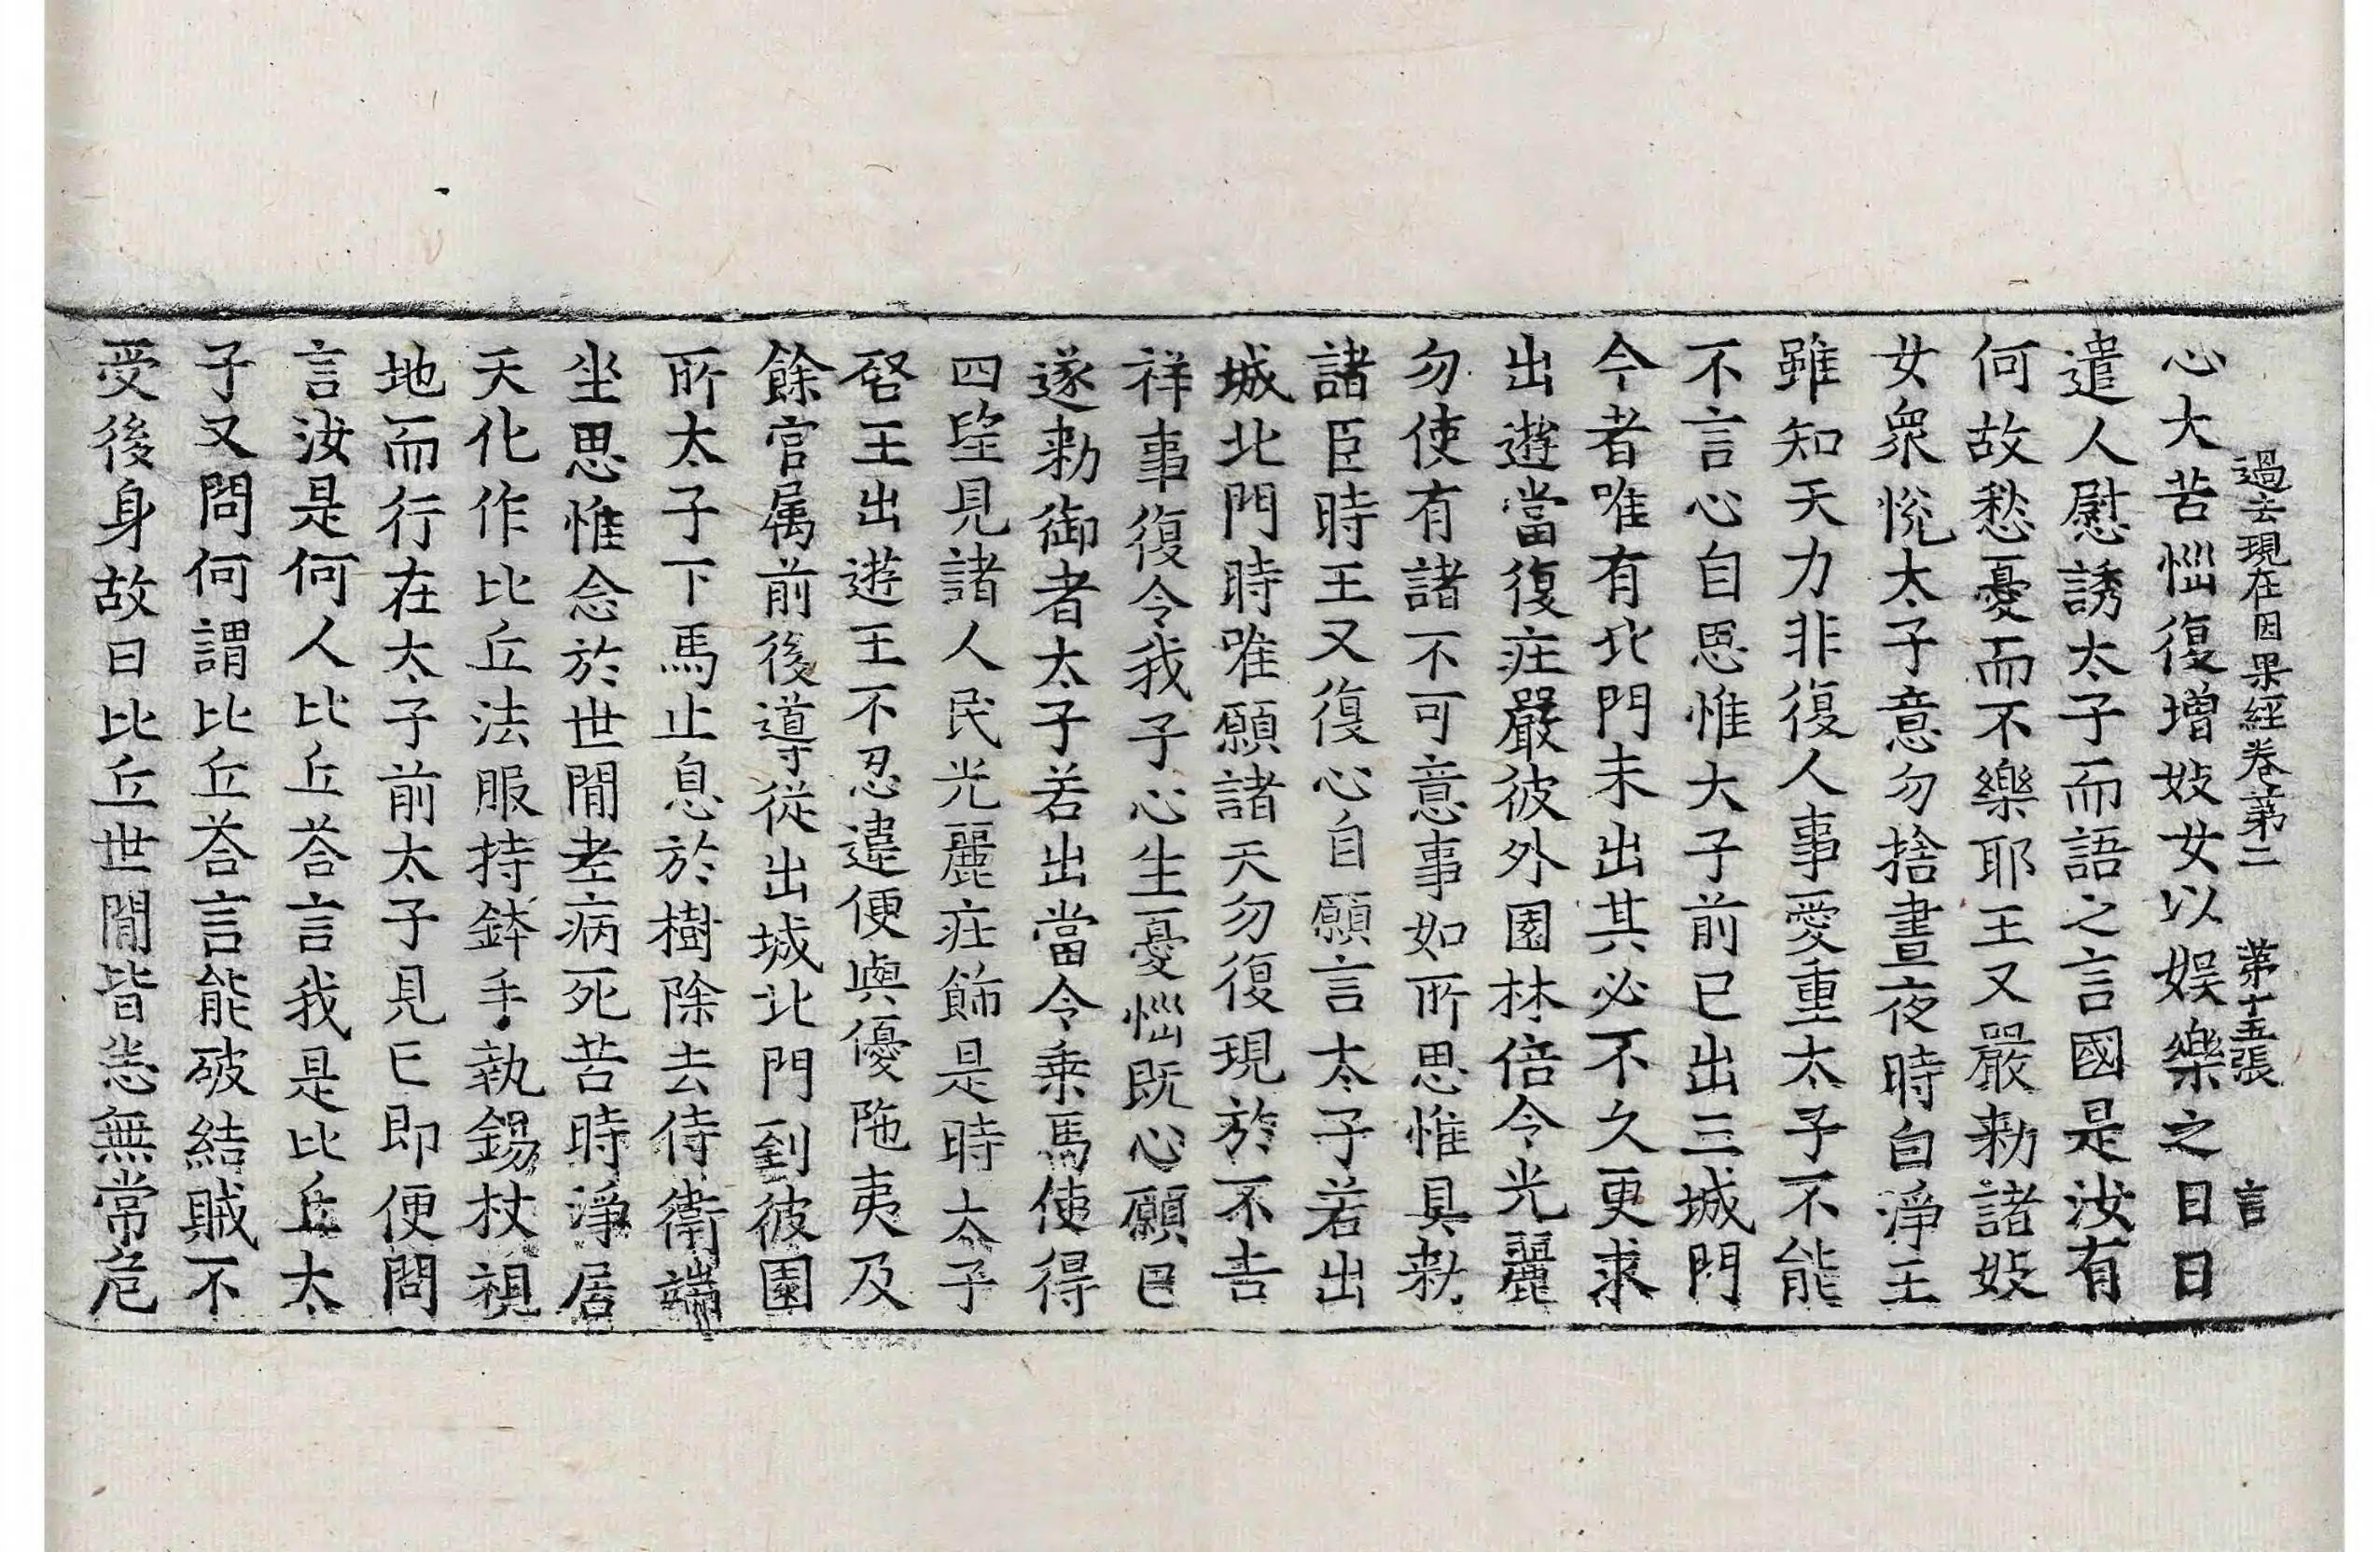 過去現在因果經卷第二 第十五張 言
心大苦惱復增妓女以娱樂之日日
遣人慰誘太子而語之言國是汝有
何故愁憂而不樂耶王又嚴勑諸妓
女衆悅太子意勿捨晝夜時自淨王
雖知天力非復人事愛重太子不能
不言心自思惟大子前已出三城門
今者唯有北門未出其必不久更求
出遊當復庄嚴彼外園林倍令光麗
勿使有諸不可意事如所思惟具勑
諸臣時王又復心自願言太子若出
城北門時唯願諸天勿復現於不吉
祥事復令我子心生憂惱既心願已
遂勑御者太子若出當令乗馬使得
四望見諸人民光麗庄飾是時太子
啓王出遊王不忍違便與優陁夷及
餘官属前後導從出城北門到彼園
所太子下馬止息於樹除去侍衛端
坐思惟念於世閒老病死苦時淨居
天化作比丘法服持鉢手執錫杖視
地而行在太子前太子見已即便問
言汝是何人比丘荅言我是比丘太
子又問何謂比丘荅言能破結賊不
受後身故曰比丘世閒皆悉無常危